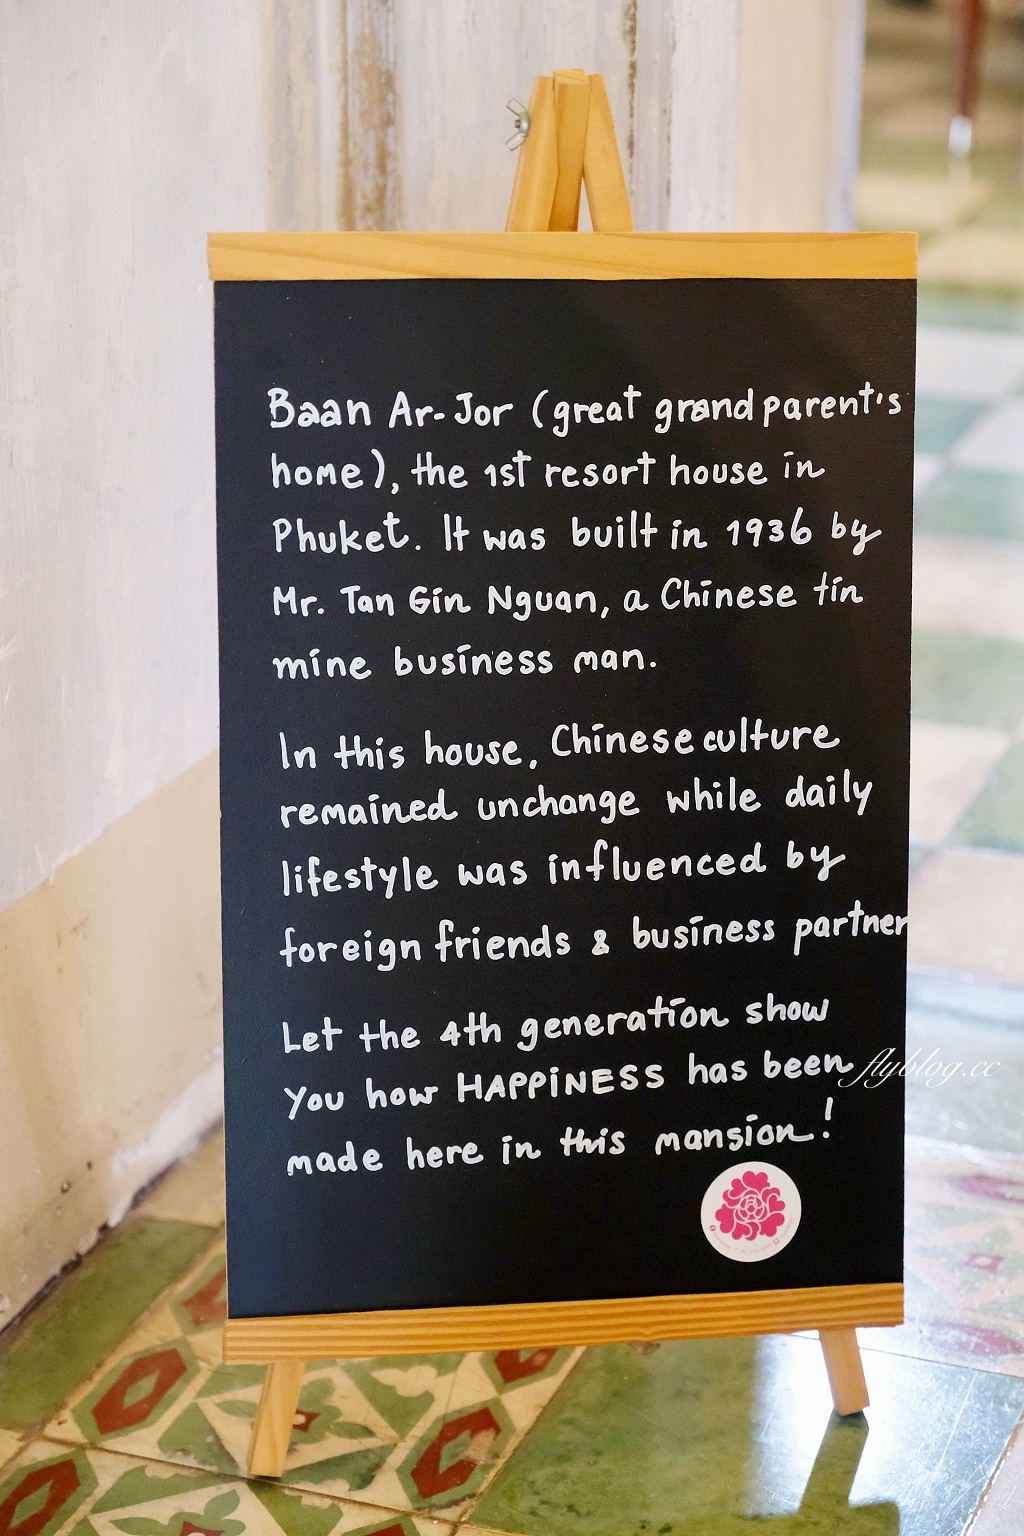 Baan Ar-Jor (great grandparent's
home), the 1st resort house in
Phuket. It was built in 1936 by
Mr. Tan Gin Nguan, a Chinese tin
mine business man.
In this house, Chinese culture
remained unchange while daily
lifestyle was influenced by
foreign friends & business partner
Let the 4th generation show
You how HAPPiNESS has been
made here in this mansion!
flyblog.cc